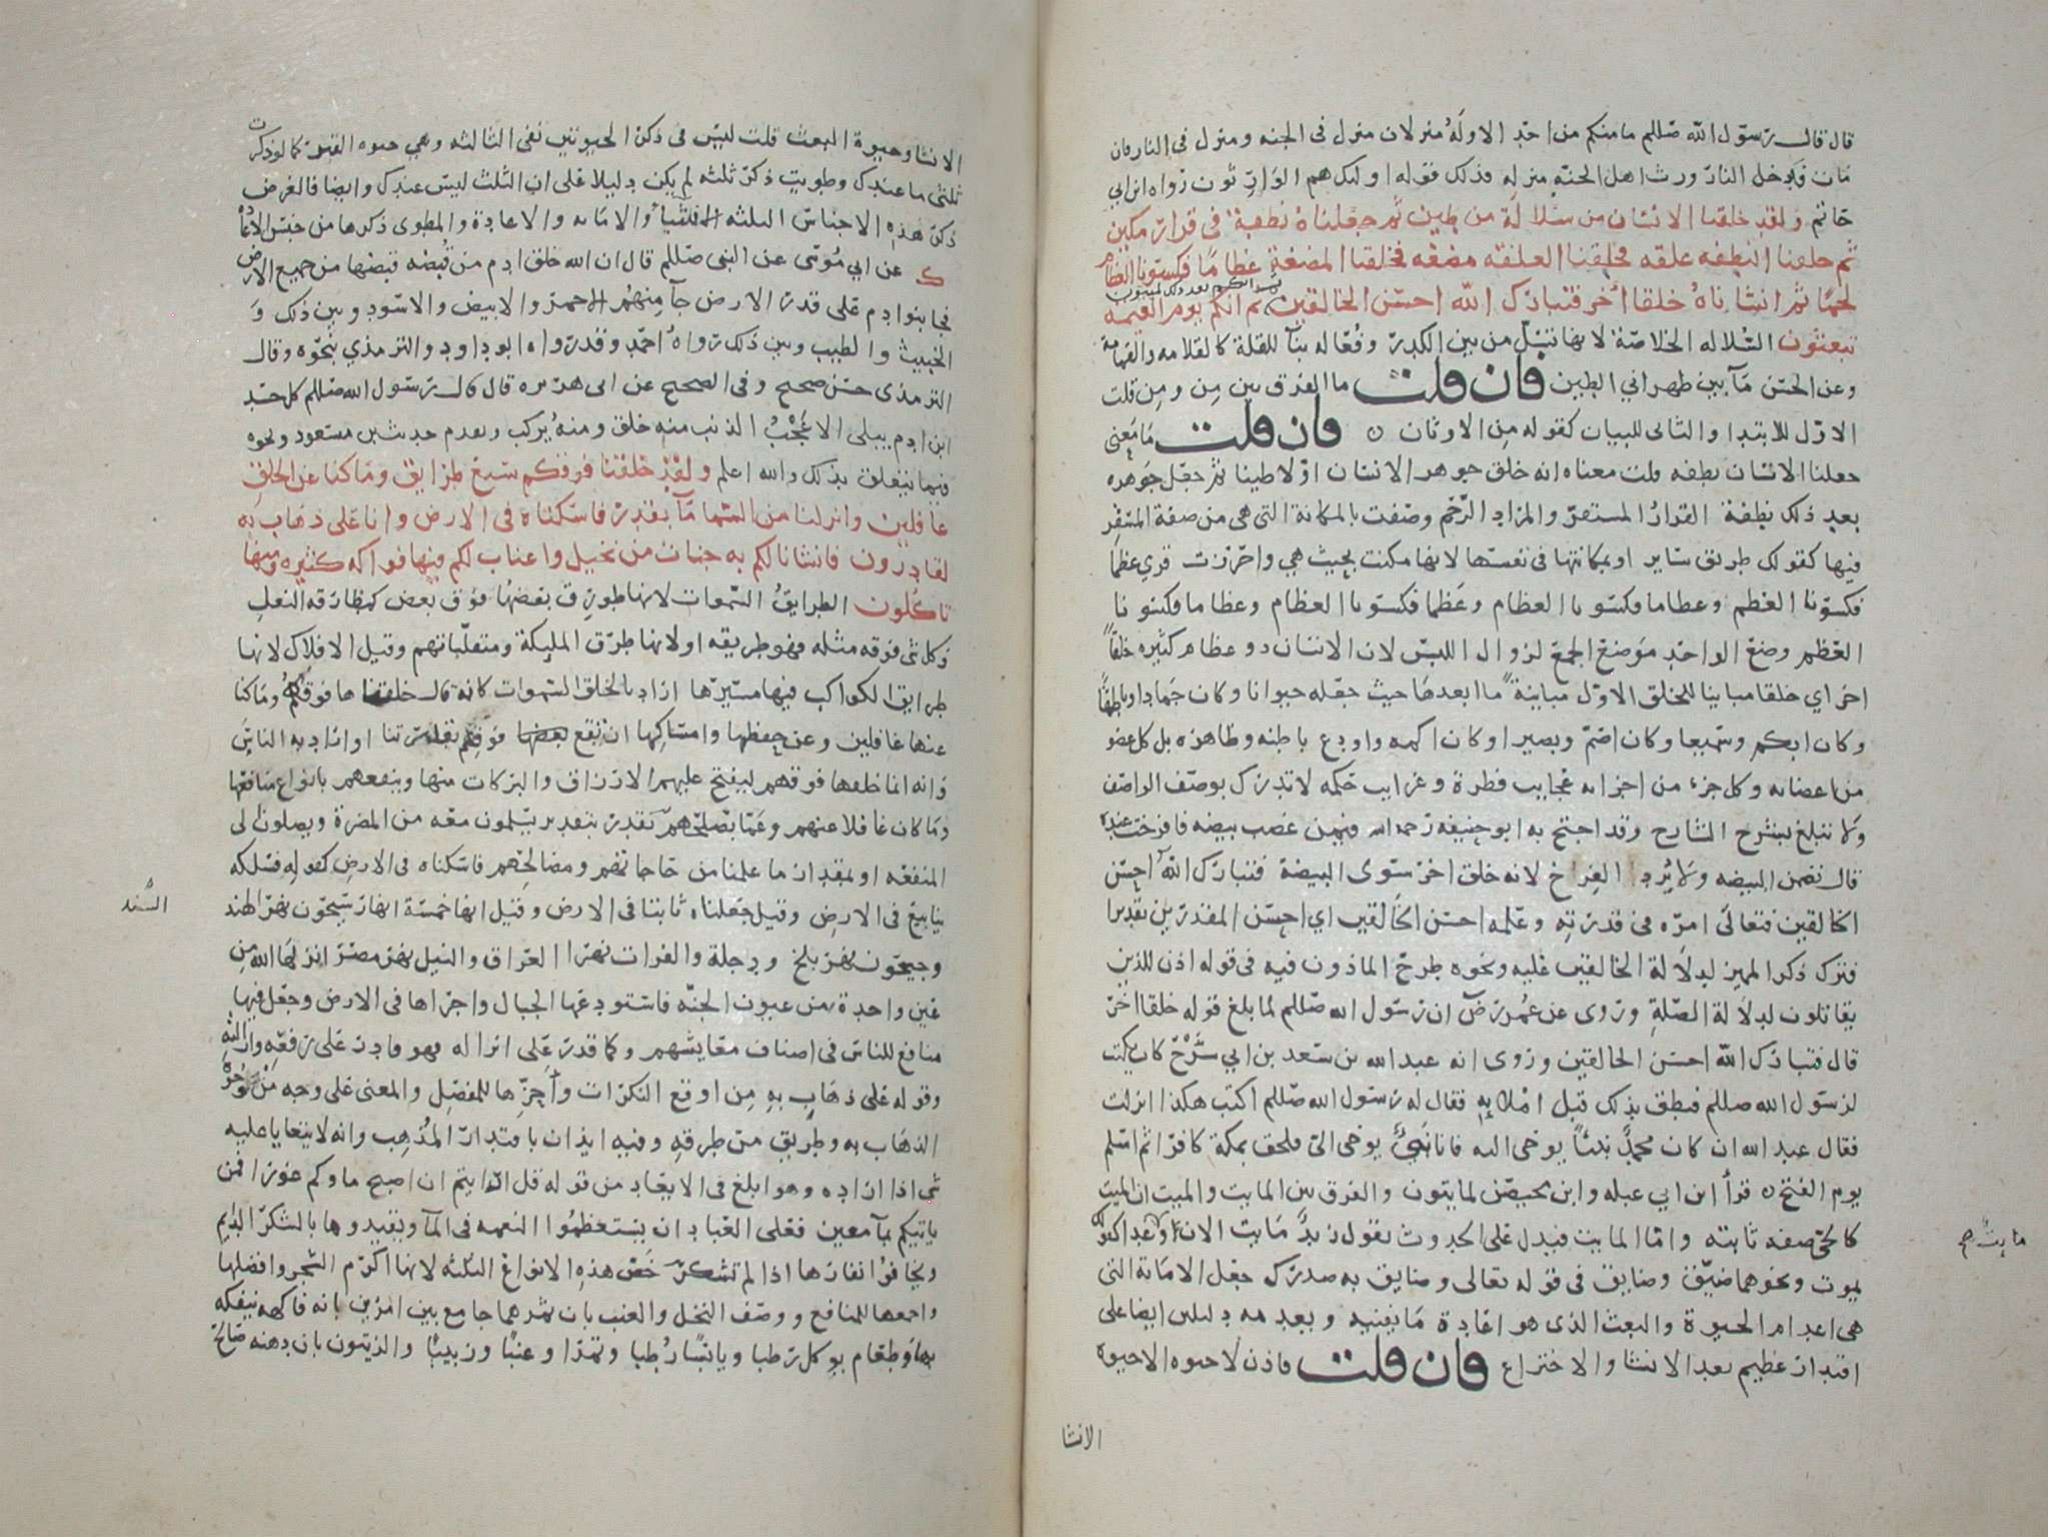 قال قال رسول الله صللم ما منكم من احد الا وله منزلان منزل في الجنه ومنزل في النار فان
مات فدخل النار ورث اهل الجنه منزله فذلك قوله اولئك هم الوارثون رواه ابن ابي
حاتم ولقد خلقنا الانسان من سلالة من طين ثم جعلناه نطفة في قرار مكين
ثم خلقنا النطفه علقه فخلقنا العلقه مضغه فخلقنا المضغة عظاما فكسونا العظام
لحما ثم انشاناه خلقا آخر فتبارك الله احسن الخالقين ثم انكم بعد ذلك لميتون ثم انكم يوم القيمه
تبعثون السلاله الخلاصة لانها تسل من بين الكدر وفعاله بنآ للقلة كالقلامه والقمامة
وعن الحسن مآ بين ظهراني الطين فان قلت ما الفرق بين من ومن قلت
الاول للابتدا والثاني للبيان كقوله من الاوثان ٥ فان قلت ما معنى
جعلنا الانسان نطفه قلت معناه انه خلق جوهر الانسان اولا طينا ثم جعل جوهره
بعد ذلك نطفة القرار المستقر والمراد الرحم وصفت بالمكانة التي هي من صفة المستقر
فيها كقولك طريق ساير او بمكانتها في نفسها لانها مكنت بحيث هي واحرزت قري عظما
فكسونا العظم وعظاما فكسونا العظام وعظما فكسونا العظام وعظاما فكسونا
العظم وضع الواحد موضع الجمع لزوال اللبس لان الانسان ذو عظام كثيره خلقاً
اخر اي خلقا مباينا للخلق الاول مباينةً ما ابعدها حيث جعله حيوانا وكان جمادا وناطقاً
وكان ابكم وسميعا وكان اصم وبصيرا وكان اكمه واودع باطنه وظاهره بل كل عضو
من اعضائه وكل جزء من اجزائه عجايب فطرة وغرايب حكمه لا تدرك بوصف الواصف
ولا تبلغ بشرح الشارح وقد احتج به ابو حنيفه رحمه الله فيمن غصب بيضه فافرخت عنده
قال يضمن البيضه ولا يرد الفراخ لانه خلق اخر سوى البيضة فتبارك اللهُ احسن
الخالقين فتعالى امره في قدرته وعلمه احسن الخالقين اي احسن المقدرين تقديرا
فترك ذكر المميز لدلالة الخالقين عليه ونحوه طرح الماذون فيه في قوله اذن للذين
يقاتلون لدلالة الصلة وروى عن عمر رض ان رسول الله صللم لما بلغ قوله خلقا اخر
قال فتبارك اللّه احسن الخالقين وروى انه عبد الله بن سعد بن ابي سرح كان يكتب
لرسول الله صللم فنطق بذلك قبل املائه فقال له رسول الله صللم اكتب هكذا انزلت
فقال عبد الله ان كان محمد نبياً يوحى اليه فانا نبيٌّ يوحى الىّ فلحق بمكة كافرا ثم اسلم
يوم الفتح ٥ قرأ ابن ابي عبله وابن محيصن لمايتون والفرق بين المايت والميت ان الميت
كالحي صفه ثابته واما المايت فيدل على الحدوث تقول زيدٌ مايت الان
يموت ونحوهما ضيق وضايق في قوله تعالى وضايق به صدرك جعل الاماتة التي
هي اعدام الحيوة والبعث الذي هو اعادة ما يفنيه ويعدمه دليلين ايضا على
اقتدار عظيم بعد الانشا والاختراع فان قلت فاذن لا حيوه الا حيوة
الانشا
مايت صح
الانشا وحيوة البعث قلت ليس في ذكر الحيوتين نفي الثالثه وهي حيوه القبر كما لو ذكرت
ثلثى ما عندك وطويت ذكر ثلثه لم يكن دليلا على ان الثلث ليس عندك وايضا فالغرض
ذكر هذه الاجناس الثلثه الانشاء والاماته والاعادة والمطوى ذكرها من جنس الاعادة
ك عن ابي موسى عن النبي صللم قال ان الله خلق ادم من قبضه قبضها من جميع الارض
فجا بنوا ادم على قدر الارض جآ منهم الاحمر والابيض والاسود وبين ذلك و
الخبيث والطيب وبين ذلك رواه احمد وقد رواه ابو داود والترمذي بنحوه وقال
الترمذى حسن صحيح وفي الصحيح عن ابى هريره قال قال رسول الله صللم كل جسد
ابن ادم يبلى الا عَجْبُ الذنب منه خلق ومنه يركب وتقدم حديث بن مسعود ونحوه
فيما يتعلق بذلك والله اعلم ولقد خلقنا فوقكم سبع طرايق وما كنا عن الخلق
غافلين وانزلنا من السما مآ بقدر فاسكناه في الارض وانا على ذهاب به
لقادرون فانشانا لكم به جنات من نخيل واعناب لكم فيها فواكه كثيره ومنها
تاكلون الطرايقُ السموات لانها طورق بعضها فوق بعض كمطارقه النعل
وكل شي فوقه مثله فهو طريقه او لانها طرق المليكة ومتقلباتهم وقيل الافلاك لانها
طرايق الكواكب فيها مسيرها اراد بالخلق السموات كانه قال خلقناها فوقكم وما كنا
عنها غافلين وعن حفظها وامساكها ان تقع فوقكم بقدرتنا او اراد به الناس
وانه انما خلقها فوقهم ليفتح عليهم الارزاق والبركات منها وينفعهم بانواع منافعها
وما كان غافلا عنهم وعما يصلحهم بقدر بتقدير يسلمون معه من المضرة ويصلون الى
المنفعه او بمقدار ما علمنا من حاجاتهم ومصالحهم فاسكناه في الارض كقوله فسلكه
ينابيع في الارض وقيل جعلناه ثابتا في الارض وقيل انها خمسة انهار سيحون نهر الهند
وجيحون نهر بلخ ودجلة والفرات نهرا العراق والنيل نهر مصر انزلها الله من
عين واحدة من عيون الجنه فاستودعها الجبال واجراها في الارض وجعل فيها
منافع للناس في اصناف معايشهم وكما قدر على انزاله فهو قادر على رفعه وازالته
وقوله على ذهاب به من اوقع النكرات واحزها للمفصل والمعنى على وجه من وجوه
الذهاب به وطريق من طرقه وفيه ايذان باقتدار المُذهِب وانه لا يتعايا عليه
شى اذا اراده وهو ابلغ في الايعاد من قوله قل ارايتم ان اصبح ماوكم غورا فمن
ياتيكم بمآ معين فعلى العباد ان يستعظموا النعمه في المآ ويقيدوها بالشكر الدايم
ويخافوا نفارها اذا لم تشكر خص هذه الانواع الثلثه لانها اكرم الشجر وافضلها
واجمعها للمنافع ووصف النخل والعنب بان ثمرهما جامع بين امرين بانه فاكهه يتفكه
بها وطعام يوكل رطبا ويابسا رُطبا وتمرا وعنبا وزبيبا والزيتون بان دهنه صالح
السند